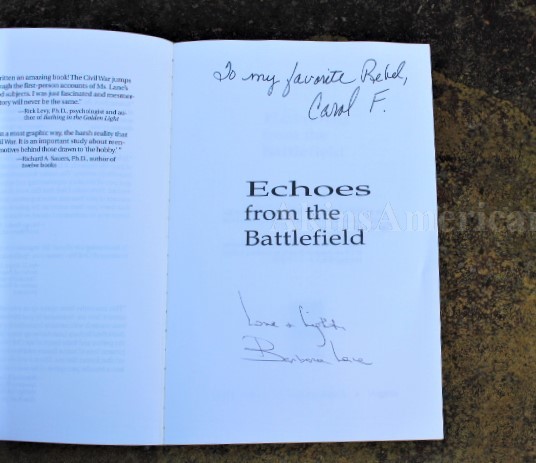 ritten an amazing book! The Civil War jumps
ough the first-person accounts of Ms. Lane's
d subjects. I was just fascinated and
they will never be the same."
—Rick Levy, Ph.D., psychologist and au-
thor of Bathing in the Golden Light
a most graphic way, the harsh reality that
Civil War. It is an important study about
motives behind those drawn to 'the hobby.'"
—Richard A. Sauers, Ph.D., author of
twelve books
To my favorite Rebel,
Carol F.
Echoes
from the
Battlefield
AkinsAmerican
Love & Light,
Barbara Lane